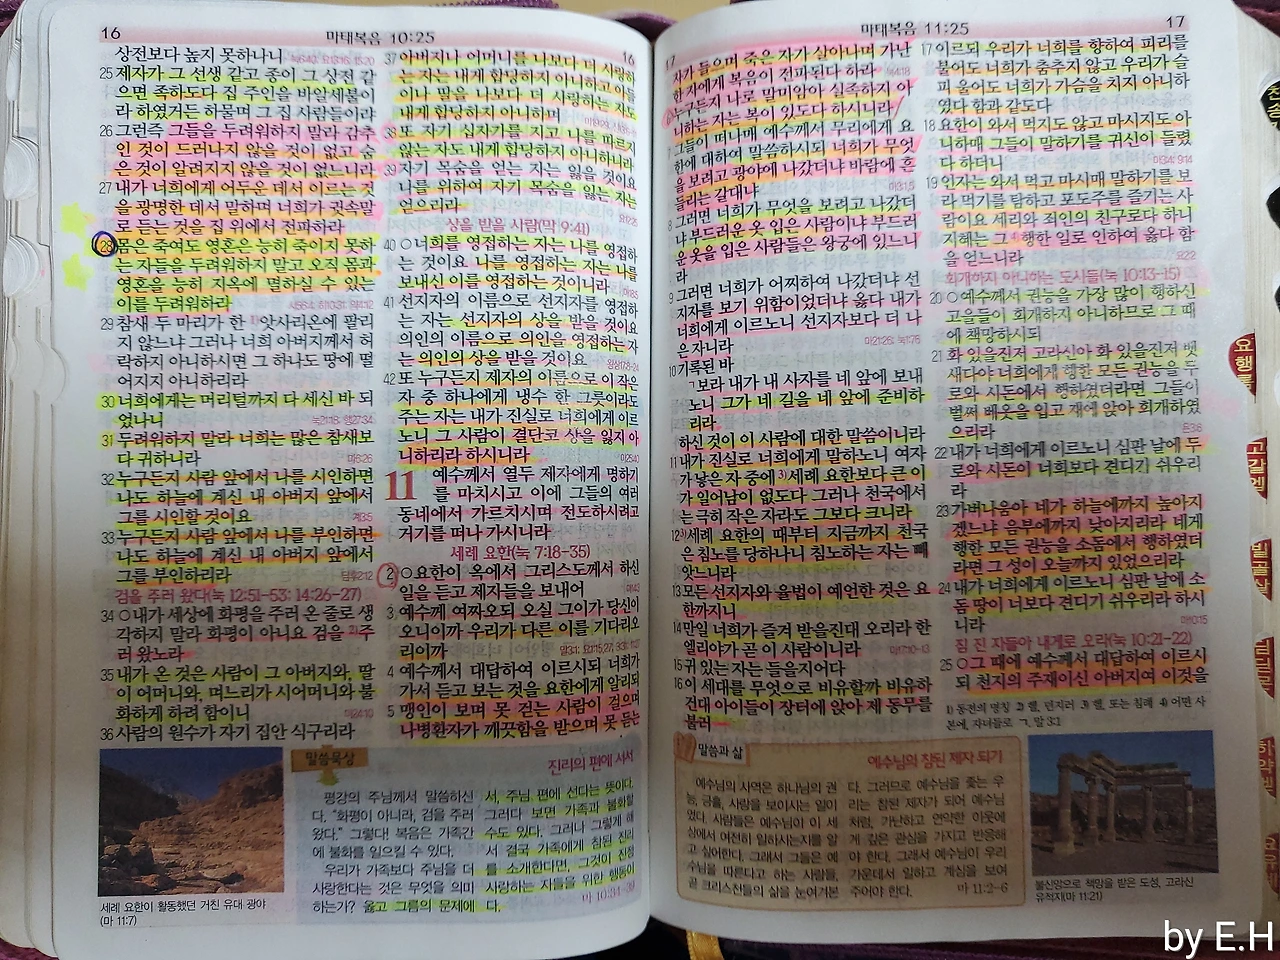 16
마태복음 10:25
16
상전보다 높지 못하나니
25 제자가 그 선생 같고 종이 그 상전 같
으면 족하도다 집 주인을 바알세불이
라 하였거든 하물며 그 집 사람들이랴
26 그런즉 그들을 두려워하지 말라 감추
인 것이 드러나지 않을 것이 없고 숨
은 것이 알려지지 않을 것이 없느니라
27 내가 너희에게 어두운 데서 이르는 것
을 광명한 데서 말하며 너희가 귓속말
로 듣는 것을 집 위에서 전파하라
28 몸은 죽여도 영혼은 능히 죽이지 못하
는 자들을 두려워하지 말고 오직 몸과
영혼을 능히 지옥에 멸하실 수 있는
이를 두려워하라
29 참새 두 마리가 한 1)앗사리온에 팔리
지 않느냐 그러나 너희 아버지께서 허
락하지 아니하시면 그 하나도 땅에 떨
어지지 아니하리라
30 너희에게는 머리털까지 다 세신 바 되
었나니
31 두려워하지 말라 너희는 많은 참새보
다 귀하니라
32 누구든지 사람 앞에서 나를 시인하면
나도 하늘에 계신 내 아버지 앞에서
그를 시인할 것이요
33 누구든지 사람 앞에서 나를 부인하면
나도 하늘에 계신 내 아버지 앞에서
그를 부인하리라
검을 주러 왔다(눅 12:51-53; 14:26-27)
34 ○내가 세상에 화평을 주러 온 줄로 생
각하지 말라 화평이 아니요 검을 2)주
러 왔노라
35 내가 온 것은 사람이 그 아버지와, 딸
이 어머니와, 며느리가 시어머니와 불
화하게 하려 함이니
36 사람의 원수가 자기 집안 식구리라
37 아버지나 어머니를 나보다 더 사랑하
는 자는 내게 합당하지 아니하고 아들
이나 딸을 나보다 더 사랑하는 자도
내게 합당하지 아니하며
38 또 자기 십자가를 지고 나를 따르지
않는 자도 내게 합당하지 아니하니라
39 자기 목숨을 얻는 자는 잃을 것이요
나를 위하여 자기 목숨을 잃는 자는
얻으리라
상을 받을 사람(막 9:41)
40 ○너희를 영접하는 자는 나를 영접하
는 것이요 나를 영접하는 자는 나를
보내신 이를 영접하는 것이니라
41 선지자의 이름으로 선지자를 영접하
는 자는 선지자의 상을 받을 것이요
의인의 이름으로 의인을 영접하는 자
는 의인의 상을 받을 것이요
42 또 누구든지 제자의 이름으로 이 작은
자 중 하나에게 냉수 한 그릇이라도
주는 자는 내가 진실로 너희에게 이르
노니 그 사람이 결단코 상을 잃지 아
니하리라 하시니라
11 예수께서 열두 제자에게 명하기
를 마치시고 이에 그들의 여러
동네에서 가르치시며 전도하시려고
거기를 떠나 가시니라
세례 요한(눅 7:18-35)
2 ○요한이 옥에서 그리스도께서 하신
일을 듣고 제자들을 보내어
3 예수께 여짜오되 오실 그이가 당신이
오니이까 우리가 다른 이를 기다리오
리이까
4 예수께서 대답하여 이르시되 너희가
가서 듣고 보는 것을 요한에게 알리되
5 맹인이 보며 못 걷는 사람이 걸으며
나병환자가 깨끗함을 받으며 못 듣는
말씀묵상
진리의 편에 서서
평강의 주님께서 말씀하신
다. "화평이 아니라, 검을 주러
왔다." 그렇다! 복음은 가족간
에 불화를 일으킬 수 있다.
우리가 가족보다 주님을 더
사랑한다는 것은 무엇을 의미
하는가? 옳고 그름의 문제에
서, 주님 편에 선다는 뜻이다.
그러다 보면 가족과 불화할
수도 있다. 그러나 그렇게 해
서 결국 가족에게 참된 진리
를 소개한다면, 그것이 진정
사랑하는 자들을 위한 행동이
다.
마 10:34-39
세례 요한이 활동했던 거친 유대 광야
(마 11:7)
17
마태복음 11:25
17
자가 들으며 죽은 자가 살아나며 가난
한 자에게 복음이 전파된다 하라
6 누구든지 나로 말미암아 실족하지 아
니하는 자는 복이 있도다 하시니라
7 그들이 떠나매 예수께서 무리에게 요
한에 대하여 말씀하시되 너희가 무엇
을 보려고 광야에 나갔더냐 바람에 흔
들리는 갈대냐
8 그러면 너희가 무엇을 보려고 나갔더
냐 부드러운 옷 입은 사람이냐 부드러
운 옷을 입은 사람들은 왕궁에 있느니
라
9 그러면 너희가 어찌하여 나갔더냐 선
지자를 보기 위함이었더냐 옳다 내가
너희에게 이르노니 선지자보다 더 나
은 자니라
10 기록된 바
ㄱ보라 내가 내 사자를 네 앞에 보내
노니 그가 네 길을 네 앞에 준비하
리라
하신 것이 이 사람에 대한 말씀이니라
11 내가 진실로 너희에게 말하노니 여자
가 낳은 자 중에 3)세례 요한보다 큰 이
가 일어남이 없도다 그러나 천국에서
는 극히 작은 자라도 그보다 크니라
12 3)세례 요한의 때부터 지금까지 천국
은 침노를 당하나니 침노하는 자는 빼
앗느니라
13 모든 선지자와 율법이 예언한 것은 요
한까지니
14 만일 너희가 즐겨 받을진대 오리라 한
엘리야가 곧 이 사람이니라
15 귀 있는 자는 들을지어다
16 이 세대를 무엇으로 비유할까 비유하
건대 아이들이 장터에 앉아 제 동무를
불러
17 이르되 우리가 너희를 향하여 피리를
불어도 너희가 춤추지 않고 우리가 슬
피 울어도 너희가 가슴을 치지 아니하
였다 함과 같도다
18 요한이 와서 먹지도 않고 마시지도 아
니하매 그들이 말하기를 귀신이 들렸
다 하더니
19 인자는 와서 먹고 마시매 말하기를 보
라 먹기를 탐하고 포도주를 즐기는 사
람이요 세리와 죄인의 친구로다 하니
지혜는 그 4)행한 일로 인하여 옳다 함
을 얻느니라
회개하지 아니하는 도시들(눅 10:13-15)
20 ○예수께서 권능을 가장 많이 행하신
고을들이 회개하지 아니하므로 그 때
에 책망하시되
21 화 있을진저 고라신아 화 있을진저 벳
새다야 너희에게 행한 모든 권능을 두
로와 시돈에서 행하였더라면 그들이
벌써 베옷을 입고 재에 앉아 회개하였
으리라
22 내가 너희에게 이르노니 심판 날에 두
로와 시돈이 너희보다 견디기 쉬우리
라
23 가버나움아 네가 하늘에까지 높아지
겠느냐 음부에까지 낮아지리라 네게
행한 모든 권능을 소돔에서 행하였더
라면 그 성이 오늘까지 있었으리라
24 내가 너희에게 이르노니 심판 날에 소
돔 땅이 너보다 견디기 쉬우리라 하시
니라
짐 진 자들아 내게로 오라(눅 10:21-22)
25 ○그 때에 예수께서 대답하여 이르시
되 천지의 주재이신 아버지여 이것을
1) 동전의 명칭 2) 헬, 던지러 3) 헬, 또는 침례 4) 어떤 사
본에, 자녀들로 ㄱ. 말 3:1
말씀과 삶
예수님의 참된 제자 되기
예수님의 사역은 하나님의 권
능, 긍휼, 사랑을 보이시는 일이
였다. 사람들은 예수님이 이 세
상에서 어떤히 일하시는지를 알
고 싶어한다. 그래서 그들은 예
수님을 따른다고 하는 사람들,
곧 크리스천들의 삶을 눈여겨본
다. 그러므로 예수님을 좇는 우
리는 참된 제자가 되어 예수님
처럼, 가난하고 연약한 이웃에
게 깊은 관심을 가지고 반응해
야 한다. 그래서 예수님이 우리
가운데서 일하고 계심을 보여
주어야 한다.
마 11:2-6
불신앙으로 책망을 받은 도성, 고라신
유적지(마 11:21)
by E.H